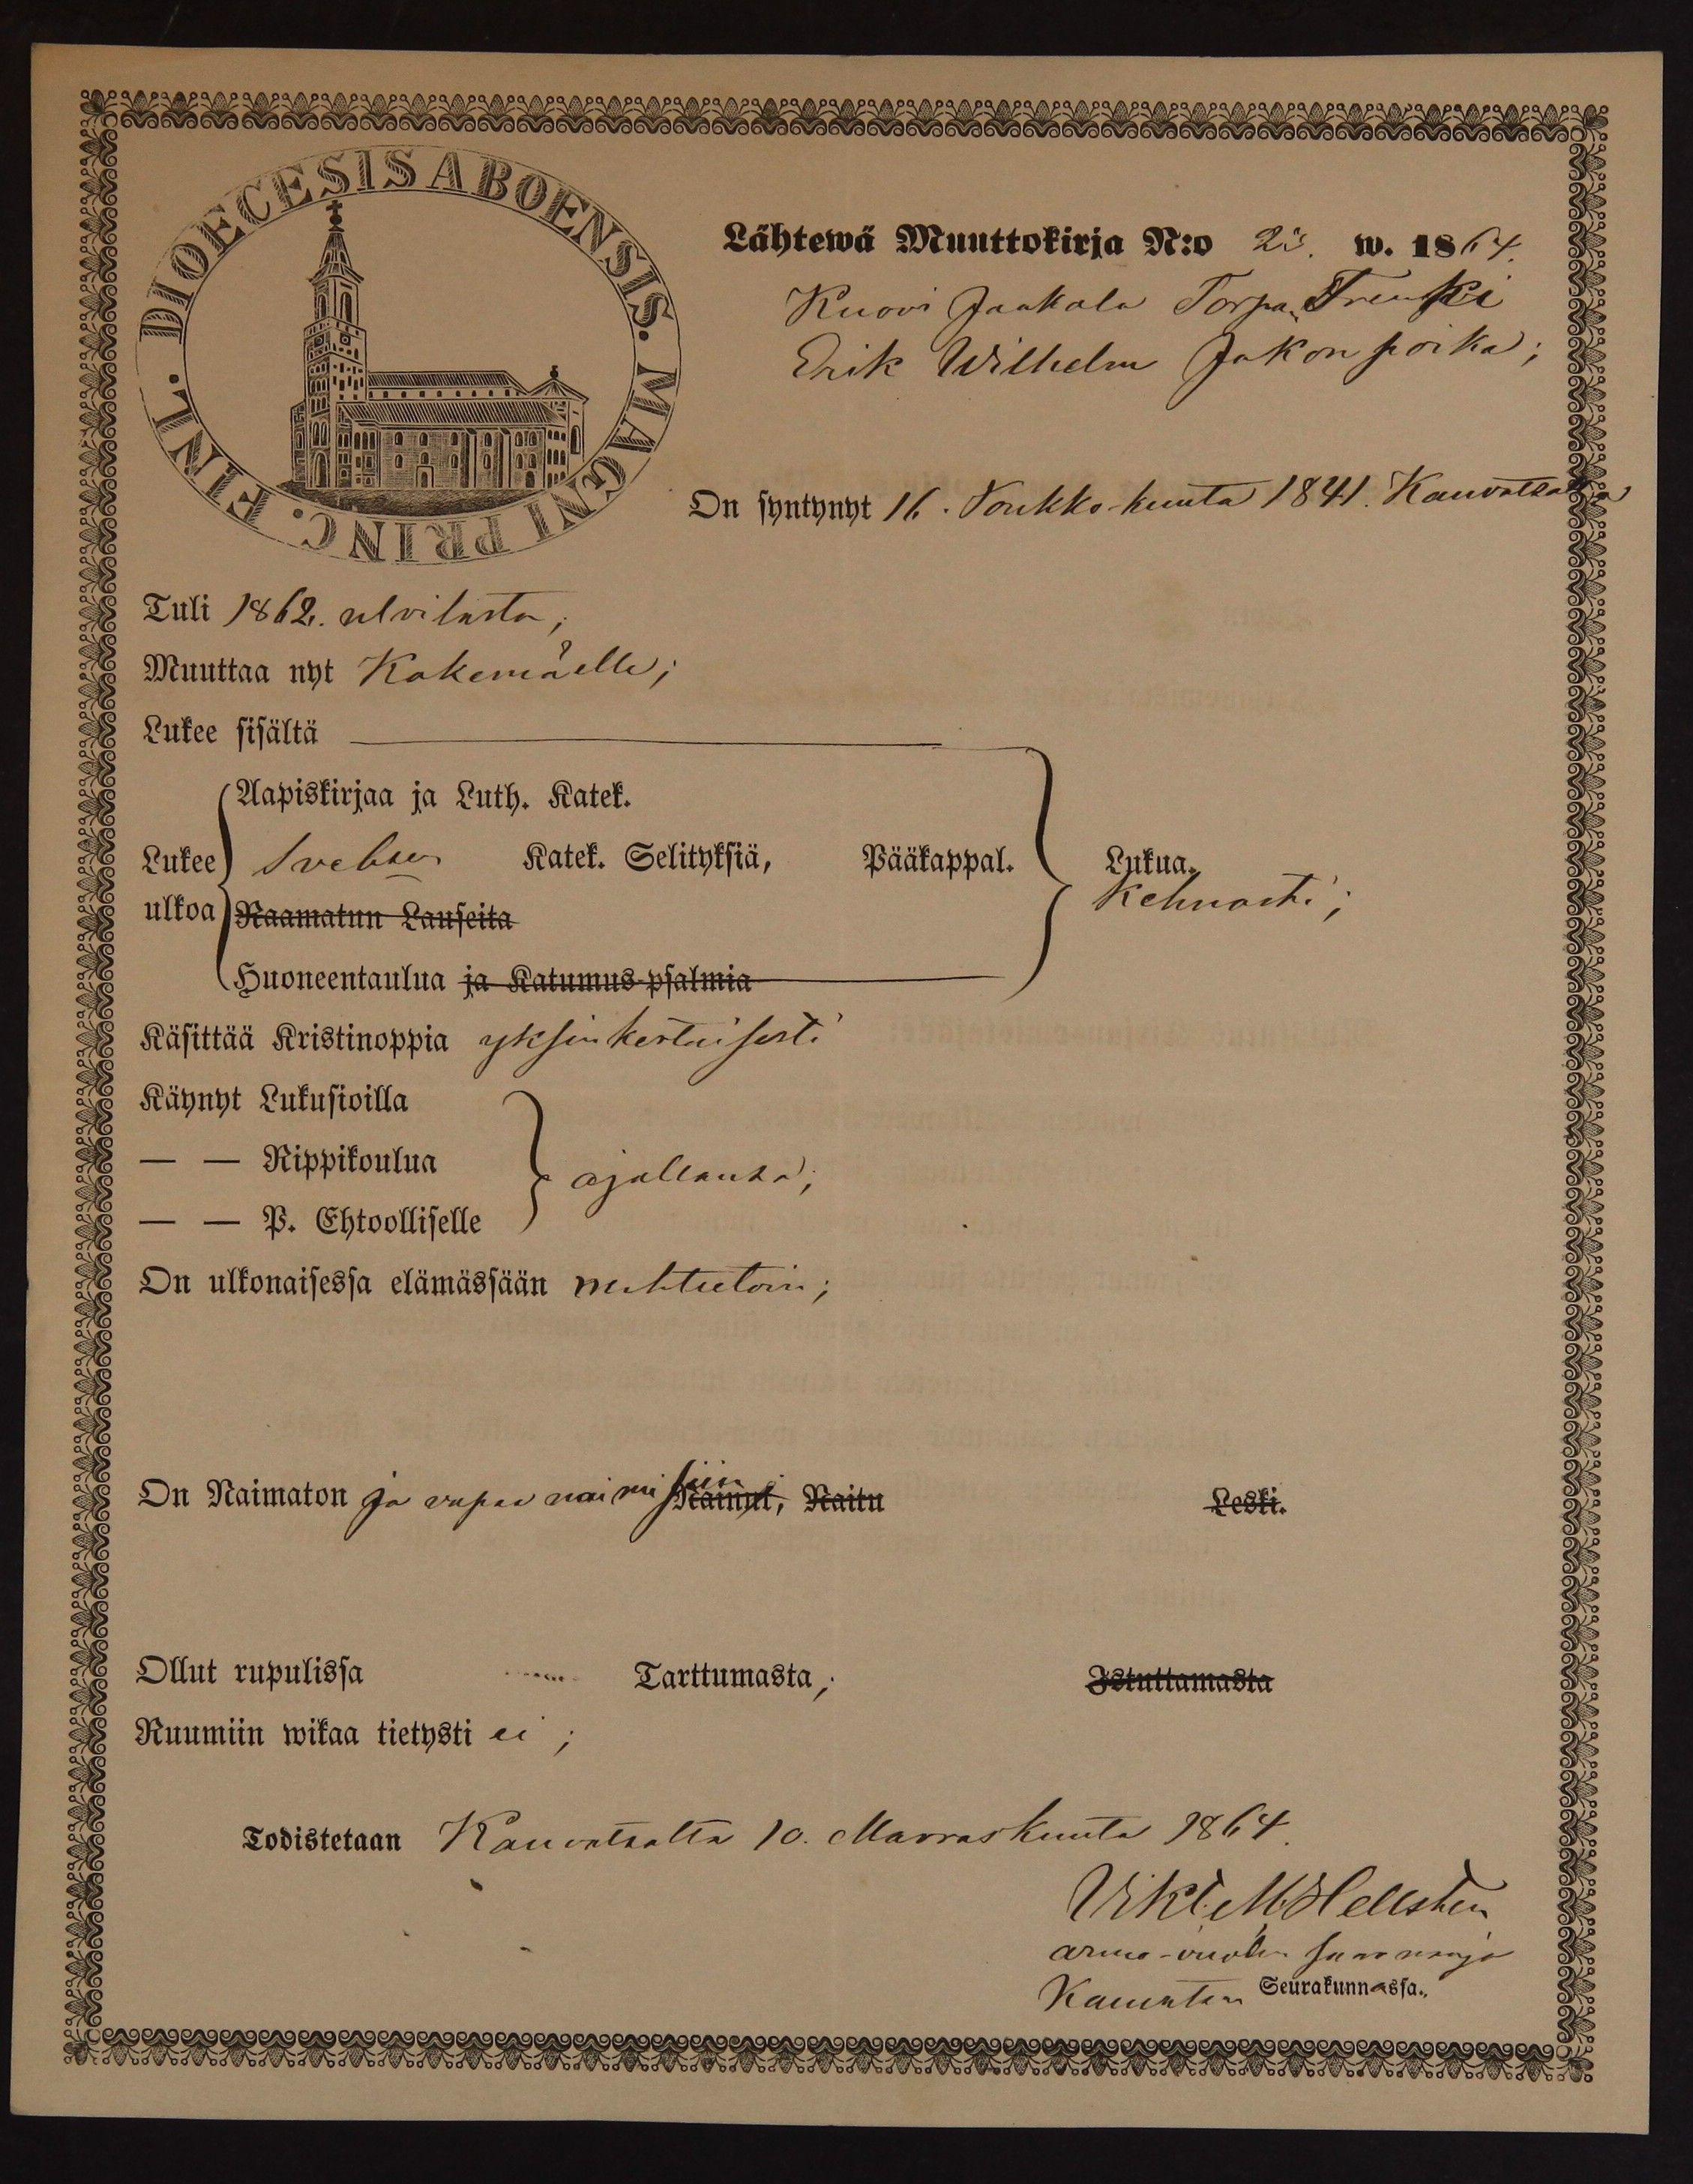 DIOECESIS ABOENSIS. MAGNI PRINC. FINL.
Lähtewä Muuttokirja N:o 23. w. 1864.
Kuovi Jaakola Torpan Trenki
Erik Wilhelm Jakon poika;
On syntynyt 16. Toukko-kuuta 1841. Kauvatsalla
Tuli 1862. ulvilasta;
Muuttaa nyt Kokemäelle;
Lukee sisältä
Aapiskirjaa ja Luth. Katek.
Lukee Katek. Selityksiä, Pääkappal. Lukua.
kehnosti;
ulkoa Raamatun Lauseita
Huoneentaulua ja Katumus-psalmia
Käsittää Kristinoppia yksinkertaisesti
Käynyt Lukusioilla
— — Rippikoulua
ajallansa;
— — P. Ehtoolliselle
On ulkonaisessa elämässään nuhteetoin;
On Naimaton ja vapaa naimisiin; Nainut, Naitu Leski.
Ollut rupulissa Tarttumasta; Istuttamasta
Ruumiin wikaa tietysti ei;
Todistetaan Kauvatsalta 10. Marraskuuta 1864.
Vikt. M. Hellsten
armo-vuoden saarnaaja
Kauvatsan Seurakunnassa.